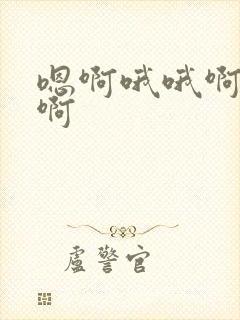 嗯啊哦哦啊
啊
卢警官